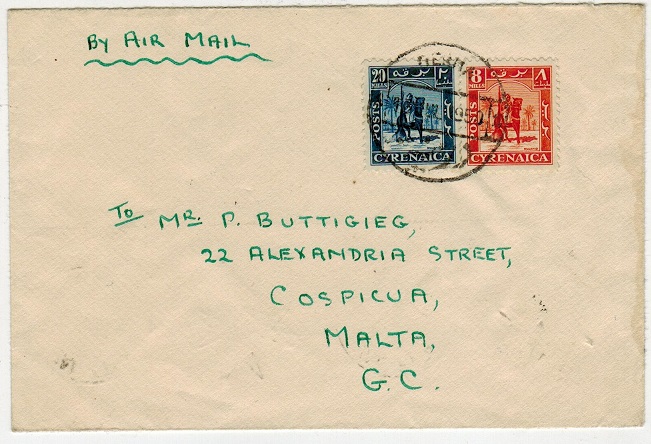 BY AIR MAIL
20 MILLS برقة ٢٠
POSTS
CYRENAICA
8 MILLS برقة ٨
POSTS
CYRENAICA
To MR. P. BUTTIGIEG,
22 ALEXANDRIA STREET,
COSPICUA,
MALTA,
G.C.